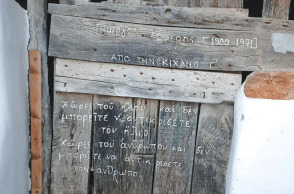 Γιώργος Σεφέρης [1900-1971]
ΑΠΟ ΤΗΝ ΚΙΧΛΗ Γ
χώρες του ήλιου και δεν
μπορείτε ν' αντικρίσετε
τον ήλιο.
χώρες του ανθρώπου και δεν
μπορείτε ν' αντικρίσετε
τον άνθρωπο.